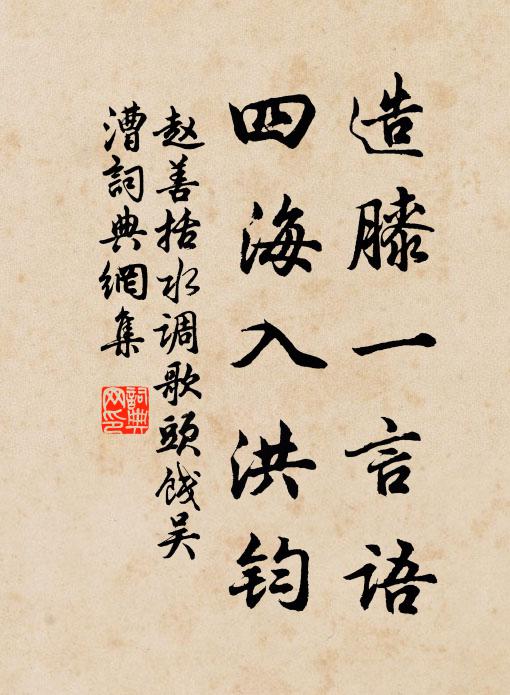 造膝一言语
四海入洪钧
赵善括水调歌头饯吴
漕词典网集
词典
网印